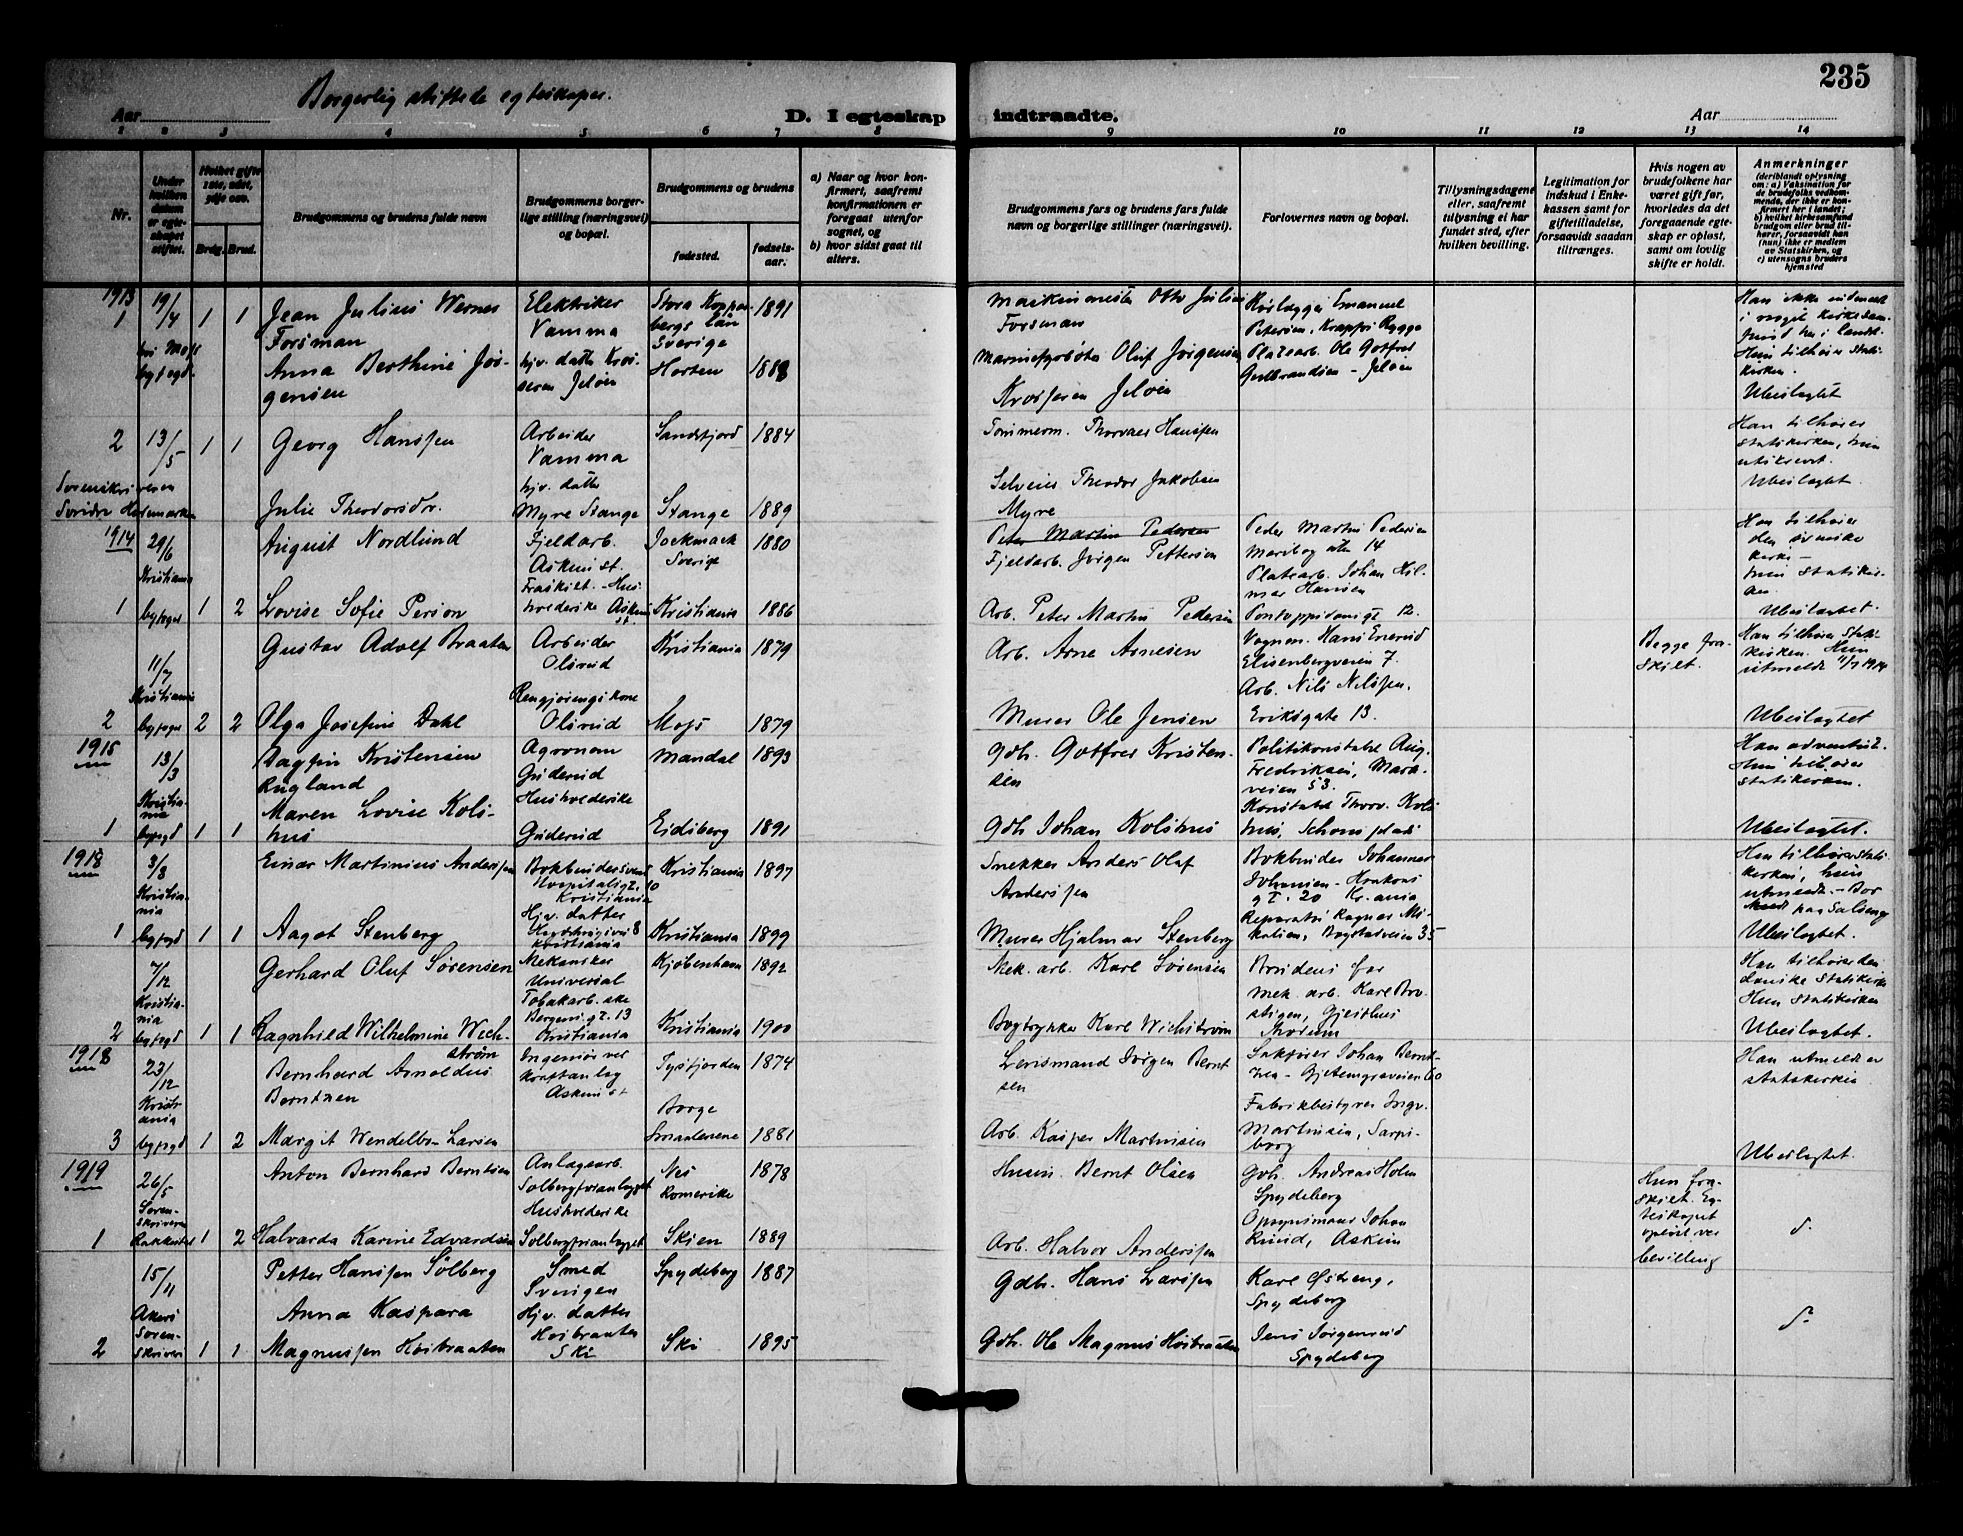 235
Borgerlig stiftede egteskaper.
Aar
D. I egteskap indtraadte.
Aar
1 2 3 4 5 6 7 8 9 10 11 12 13 14
Nr.
Under hvilken datum er egteskapet stiftet.
Hvilket gifte 1ste, 2det, 3dje osv.
Brdg. Brud.
Brudgommens og brudens fulde navn
Brudgommens borgerlige stilling (næringsvei) og bopæl.
Brudgommens og brudens
fødested.
fødselsaar.
a) Naar og hvor konfirmert, saafremt konfirmationen er foregaat utenfor sognet, og
b) hvor sidst gaat til alters.
Brudgommens fars og brudens fars fulde navn og borgerlige stillinger (næringsvei).
Forlovernes navn og bopæl.
Tillysningsdagene eller, saafremt tillysning ei har fundet sted, efter hvilken bevilling.
Legitimation for indskud i Enkekassen samt for giftetilladelse, forsaavidt saadan tiltrænges.
Hvis nogen av brudefolkene har været gift før, hvorledes da det foregaaende egteskap er opløst, samt om lovlig skifte er holdt.
Anmerkninger
(deriblandt oplysning om: a) Vaksination for de brudefolks vedkommende, der ikke er konfirmert her i landet; b) hvilket kirkesamfund brudgom eller brud tilhører, forsaavidt han (hun) ikke er medlem av Statskirken, og c) utensogns bruders hjemsted
1913
1 19/4 1 1 Jean Julius Werner Forsman
Elektriker Vamma
Stora Kopparbergs län Sverige 1891
Maskinmester Otto Julius Forsman
Emanuel Petersen, Rygge
byfogd.
Anna Berthine Jørgensen
hjv. datter Jeløen
Horten 1888
Oluf Jørgensen Jeløen
Platearb. Ole Gotfred Gulbrandsen - Jeløen
Hun tilhører statskirken.
Ubeslægtet
2 13/5 1 1 Georg Hanssen
Arbeider Vamma
Sandefjord 1884
Tømmerm. Thorvald Hanssen
Han tilhører statskirken, hun
Ubeslægtet.
Sorenskriveren Søndre Hedemarken
Julie Theodorsdr.
hjv. datter Myre Stange
Stange 1889
Selveier Theodor Jakobsen Myre
1914
29/6 August Nordlund
Fjeldarb. Askim st.
Jockmock Sverige 1880
Peter Martin Pedersen
Fjeldarb. Jørgen Pettersen
Peder Martin Pedersen
14
Han tilhører den svenske kirke -
1 Kristiania byfoged 1 2 Lovise Sofie Person
Fraskilt. - Husholderske Askim st.
Kristiania 1886
Arb. Peter Martin Pedersen
Platearb. Johan Hilmar Hansen
Pontoppidansgt 12.
hun statskirken
Ubeslægtet.
11/7 Gustav Adolf Braaten
Arbeider Olsrud
Kristiania 1879
Arb. Arne Arnesen
Vognm. Hans Enerud
Elisenbergveien 7.
Begge fraskilt.
Han tilhører Statskirken. Hun utmeldt 11/7 1914
2 Kristiania byfoged 2 2 Olga Josefine Dahl
Rengjøringskone Olsrud
Moss 1879
Murer Ole Jensen
Arb. Nils Nilssen.
Eriksgate 13.
Ubeslægtet
1915
13/3 Dagfin Kristensen Rugland
Agronom Guderud
Mandal 1893
Gdb. Gotfred Kristensen
Politikonstabel Aug. Fredriksen, Markveien 53.
Han adventist. Hun tilhører statskirken.
1 Kristiania byfogd 1 1 Maren Lovise Kolshus
Husholderske Guderud
Eidsberg 1891
Gdb. Johan Kolshus
Konstabel Thorv. Kolshus, Schous plads
Ubeslægtet.
1918
3/8 Einar Martinius Anderssen
Bokbindersvend Hospitalsgt. 10 Kristiania
Kristiania 1897
Snekker Anders Olaf Anderssen
Bokbinder Johannes Johansen - Haakons gt. 20 Kr.ania
Han tilhører statskirken, hun utmeldt. -
1 Kristiania byfogd 1 1 Aagot Stenberg
Hjv. datter Kristiania
Kristiania 1899
Murer Hjalmar Stenberg
Reparatør Ragnar Mikalsen, Bogstadveien 35
Ubeslægtet.
7/12 Gerhard Oluf Sørensen
Mekaniker Universal
Kjøbenhavn 1892
Mek. arb. Karl Sørensen
Brudens far
Han tilhører den danske Statskirke
Hun Statskirken
2 Kristiania byfogd 1 1 Ragnhild Wilhelmine Wichstrøm
Tobakarb.ske Bergensgt. 13 Kristiania
Kristiania 1900
Bogtrykker Karl Wichstrøm
Mek. arb. Karl
Ubeslægtet.
1918
23/12 Bernhard Arnoldus Berntzen
Ingeniør ved kraftanlæg Askim st
Tysfjorden 1874
Lensmand Jørgen Berntsen
Sakfører Johan Berntzen - Gjetemyrsveien 60
Han utmeldt av statskirken
3 Kristiania byfogd 1 2 Margit Wendelbo Larsen
Borge Smaalenene 1881
Arb. Kasper Martinsen
Fabrikbestyrer Ingv. Martinsen, Sarpsborg
Ubeslægtet.
1919
26/5 Anton Bernhard Berntsen
Anlægsarb. Solbergfosanlægget
Nes Romerike 1878
Husm. Bernt Olsen
Gdb. Andreas Holm Spydeberg
Hun fraskilt. Egteskapet opløst ved bevilling
1 Sorenskriveren Rakkestad 1 2 Halvarda Karine Edvardsen
Husholderske Solbergfosanlægget
Skien 1889
Arb. Halvor Anderssen
Opsynsmand Johan Ruud, Askim
d.
15/11 Petter Hanssen Solberg
Smed Sverigen
Spydeberg 1887
Gdbr. Hans Larssen
Karl Østreng, Spydeberg
2 Akers Sorenskriveri 1 1 Anna Kaspara Magnussen Høibraaten
Hjv. datter Høibraaten Ski
Ski 1895
Gdb. Ole Magnus Høibraaten
Jens Jørgenrud Spydeberg